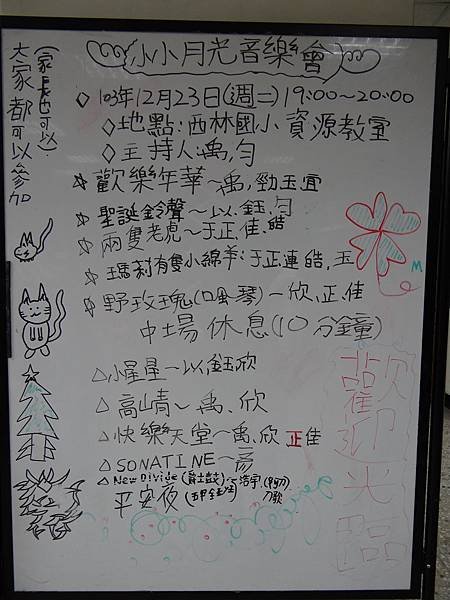 小小月光音樂會
大家都可以參加
(家長也可以)
◇103年12月23日(週二)19:00~20:00
◇地點:西林國小資源教室
◇主持人:禹,勻
☆歡樂年華~禹,勁玉宜
☆聖誕鈴聲~以.鈺.勻
☆兩隻老虎~于正.佳.皓
☆瑪莉有隻小綿羊:于正連皓,玉
☆野玫瑰(口風琴)-欣.正.佳
中場休息(10分鐘)
△小星星-以鈺欣
△高山青~禹.欣
△快樂天堂~禹.欣 正佳
△SONATINE~彥
△New Divide(爵士鼓)~浩宇
平安夜
M
歡迎光臨